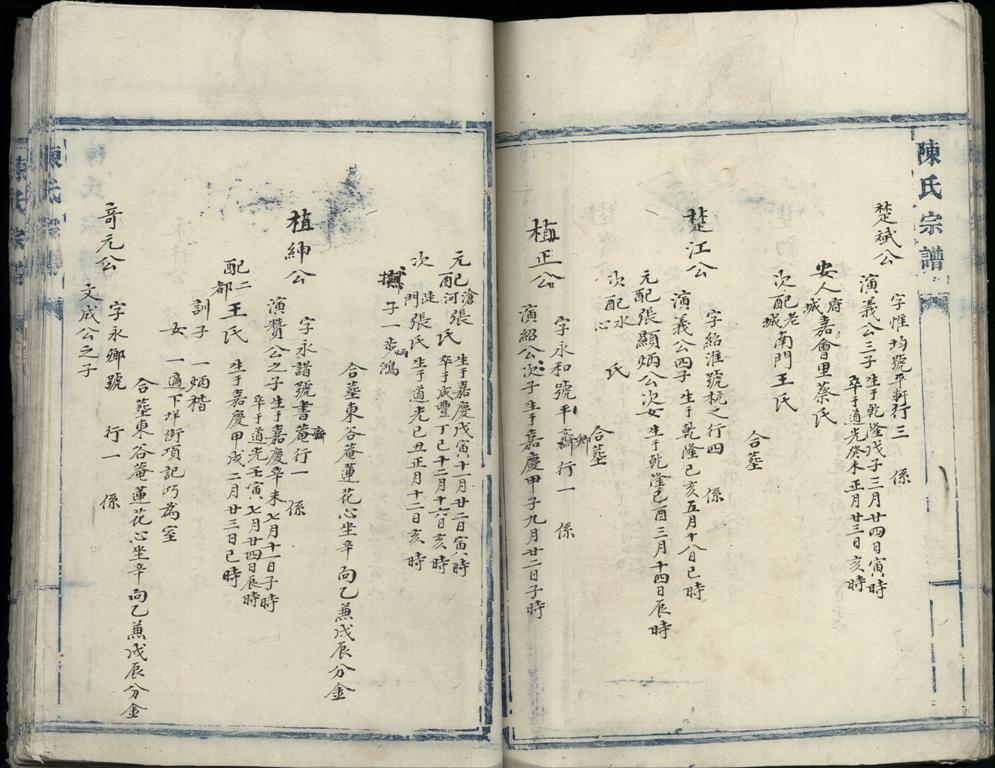 陳氏宗譜
楚斌公
字惟均號平軒行三 係
演義公三子生于乾隆戊子三月廿四日寅時
卒于道光癸未正月廿三日亥時
安人府城嘉會里蔡氏
次配老城南門王氏
合墓
楚江公
字紹淮號杭之行四 係
演義公四子生于乾隆己亥五月十八日巳時
元配張顯炳公次女生于乾隆己酉三月十四日辰時
次配水心 氏
合墓
植正公
字永和號平齋行一 係
演紹公次子生于嘉慶甲子九月廿二日子時
元配滄河張氏生于嘉慶戊寅十月廿二日寅時
卒于咸豐丁巳十二月十六日亥時
次 門張氏生于道光己丑正月十二日亥時
撫子一步鴻
合墓東谷菴蓮花心坐辛向乙兼戌辰分金
植紳公
字永譜號書菴行一 係
演贊公之子生于嘉慶辛未七月十一日子時
卒于道光壬寅七月廿四日辰時
配二都王氏生于嘉慶甲戌二月廿三日巳時
訓子一炳稭
女一適下垟街項記巧為室
合墓東谷菴蓮花心坐辛向乙兼戌辰分金
奇元公
字永鄉號 行一 係
文成公之子
陳氏宗譜